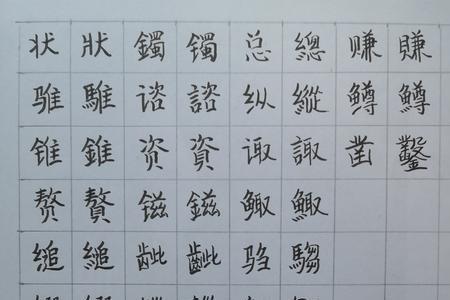 状 狀 鐲 镯 总 總 赚 賺
骓 騅 谘 諮 纵 縱 鳟 鱒
锥 錐 资 資 诹 諏 凿 鑿
赘 贅 镃 鎡 鲰 鯫
缒 縋 龇 齜 驺 騶